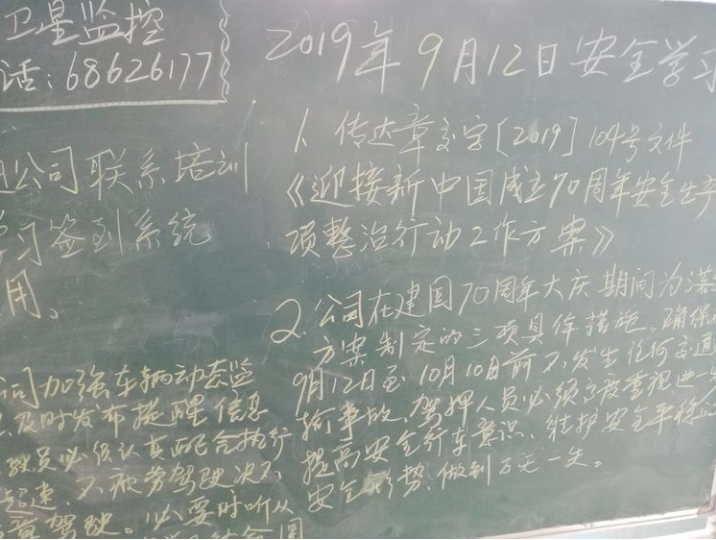 卫星监控
话：68626177
公司联系培训
学习签到系统
用。
司加强车辆动态监
及时发布提醒信息
驶员必须认真配合执行
超速，不疲劳驾驶决不
驾驶。必要时听从
2019年9月12日安全学习
1、传达章交字［2019］104号文件
《迎接新中国成立70周年安全生产
项整治行动工作方案》
2、公司在建国70周年大庆期间为
方案制定的三项具体措施、确保
9月12日至10月10日前不发生任何交通
输事故、驾押人员必须高度重视进一
提高安全行车意识、维护安全平稳
安全形势、做到万无一失。